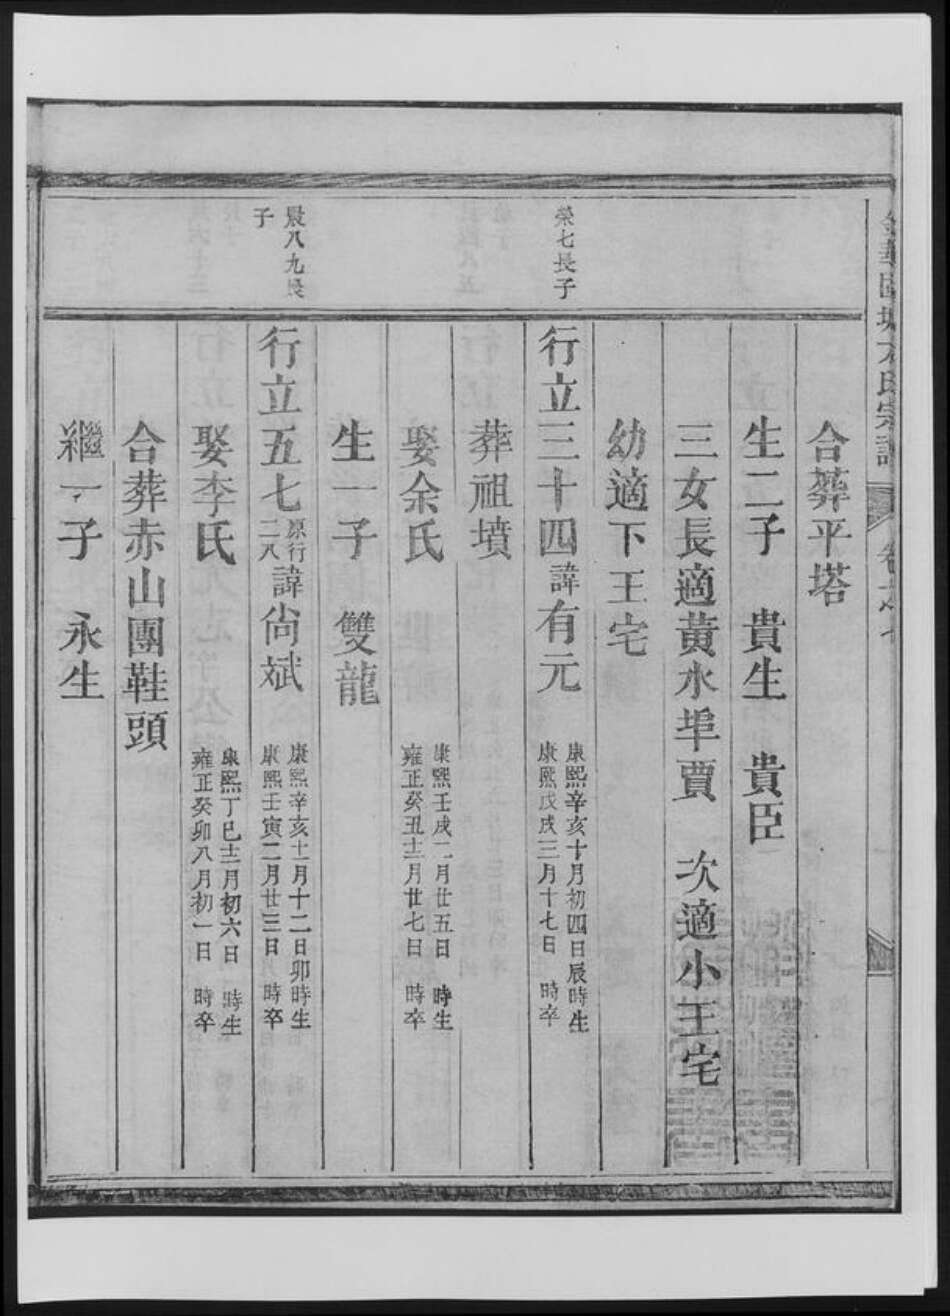 氏宗譜
合葬平塔
生二子 貴生 貴臣
三女長適黃水埠賈 次適小王宅
幼適下王宅
榮七長子
行立三十四諱有元 康熙辛亥十月初四日辰時生
康熙戊戌三月十七日 時卒
葬祖墳
娶余氏 康熙壬戌二月廿五日 時生
雍正癸丑十二月廿七日 時卒
生一子 雙龍
八九長
子
行立五七 原行
二八 諱尙斌 康熙辛亥十一月十二日卯時生
康熙壬寅二月廿三日 時卒
娶李氏 康熙丁巳十二月初六日 時生
雍正癸卯八月初一日 時卒
合葬赤山團鞋頭
繼一子 永生